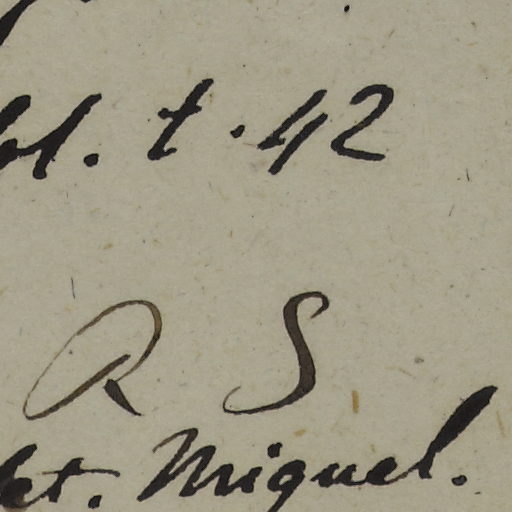 t. 42
R S
Miquel.